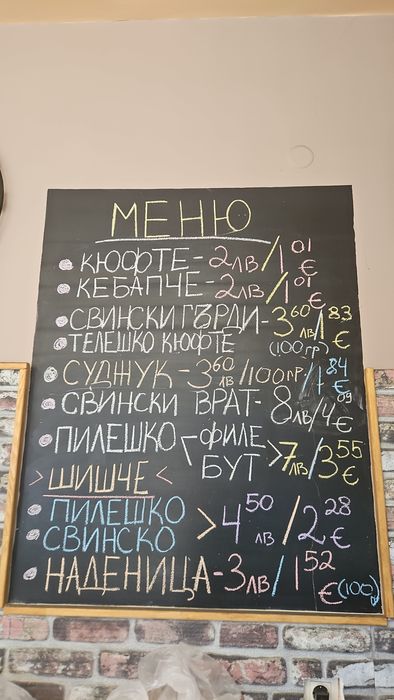 МЕНЮ
КЮФТЕ - 2лв/1 01 €
КЕБАПЧЕ - 2лв/1 01 €
СВИНСКИ ГЪРДИ - 3 60 лв/1 83 €
ТЕЛЕШКО КЮФТЕ (100гр)
СУДЖУК - 3 60 лв/100гр/1 84 €
СВИНСКИ ВРАТ - 8лв/4 09 €
ПИЛЕШКО < ФИЛЕ
БУТ > 7лв/3 55 €
> ШИШЧЕ <
ПИЛЕШКО
СВИНСКО > 4 50 лв/2 28 €
НАДЕНИЦА - 3лв/1 52 € (100)